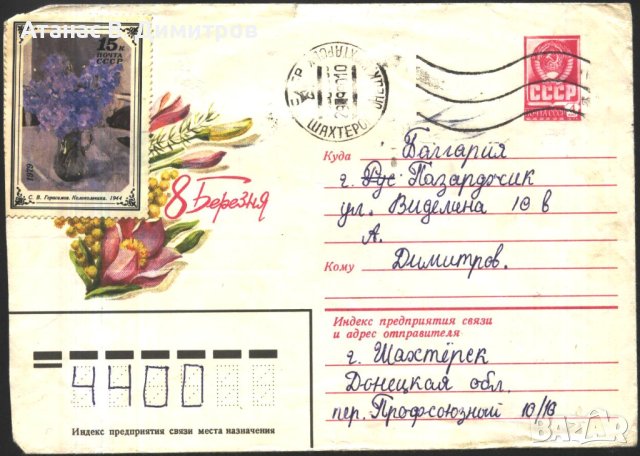 Атанас В. Димитров
15 к
ПОЧТА
СССР
1979
С. В. Герасимов. Колокольчики. 1944
ШАХТЕРС
СССР
ПОЧТА СССР
8 Березня
Куда Болгария
г. Рус Пазардочик
ул. Виделина 10 в
А.
Кому Димитров.
Индекс предприятия связи
и адрес отправителя
г. Шахтёрск
Донецкая обл.
пер. Профсоюзный 10/10
4400
Индекс предприятия связи места назначения
BAZAR